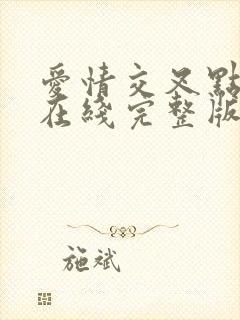 愛情交叉點
在綫完整版
施斌